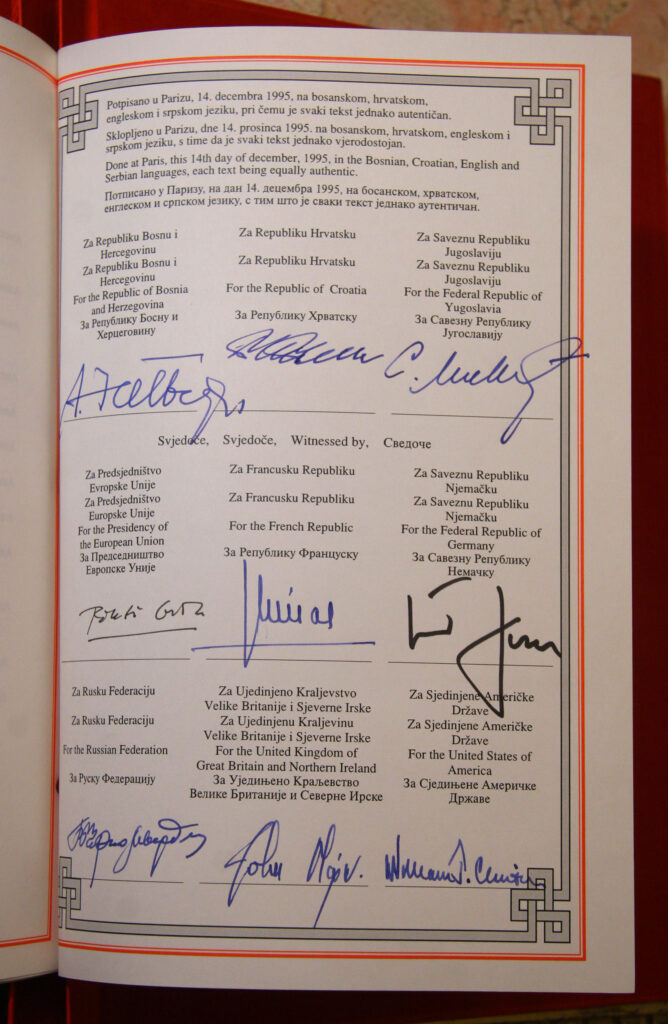 Potpisano u Parizu, 14. decembra 1995, na bosanskom, hrvatskom,
engleskom i srpskom jeziku, pri čemu je svaki tekst jednako autentičan.
Sklopljeno u Parizu, dne 14. prosinca 1995. na bosanskom, hrvatskom, engleskom i
srpskom jeziku, s time da je svaki tekst jednako vjerodostojan.
Done at Paris, this 14th day of december, 1995, in the Bosnian, Croatian, English and
Serbian languages, each text being equally authentic.
Потписано у Паризу, на дан 14. децембра 1995, на босанском, хрватском,
енглеском и српском језику, с тим што је сваки текст једнако аутентичан.
Za Republiku Bosnu i
Hercegovinu
Za Republiku Bosnu i
Hercegovinu
For the Republic of Bosnia
and Herzegovina
За Републику Босну и
Херцеговину
Za Republiku Hrvatsku
Za Republiku Hrvatsku
For the Republic of Croatia
За Републику Хрватску
Za Saveznu Republiku
Jugoslaviju
Za Saveznu Republiku
Jugoslaviju
For the Federal Republic of
Yugoslavia
За Савезну Републику
Југославију
Svjedoče, Svjedoče, Witnessed by, Сведоче
Za Predsjedništvo
Evropske Unije
Za Predsjedništvo
Europske Unije
For the Presidency of
the European Union
За Председништво
Европске Уније
Za Francusku Republiku
Za Francusku Republiku
For the French Republic
За Републику Француску
Za Saveznu Republiku
Njemačku
Za Saveznu Republiku
Njemačku
For the Federal Republic of
Germany
За Савезну Републику
Немачку
Za Rusku Federaciju
Za Rusku Federaciju
For the Russian Federation
За Руску Федерацију
Za Ujedinjeno Kraljevstvo
Velike Britanije i Sjeverne Irske
Za Ujedinjenu Kraljevinu
Velike Britanije i Sjeverne Irske
For the United Kingdom of
Great Britain and Northern Ireland
За Уједињено Краљевство
Велике Британије и Северне Ирске
Za Sjedinjene Američke
Države
Za Sjedinjene Američke
Države
For the United States of
America
За Сједињене Америчке
Државе
John